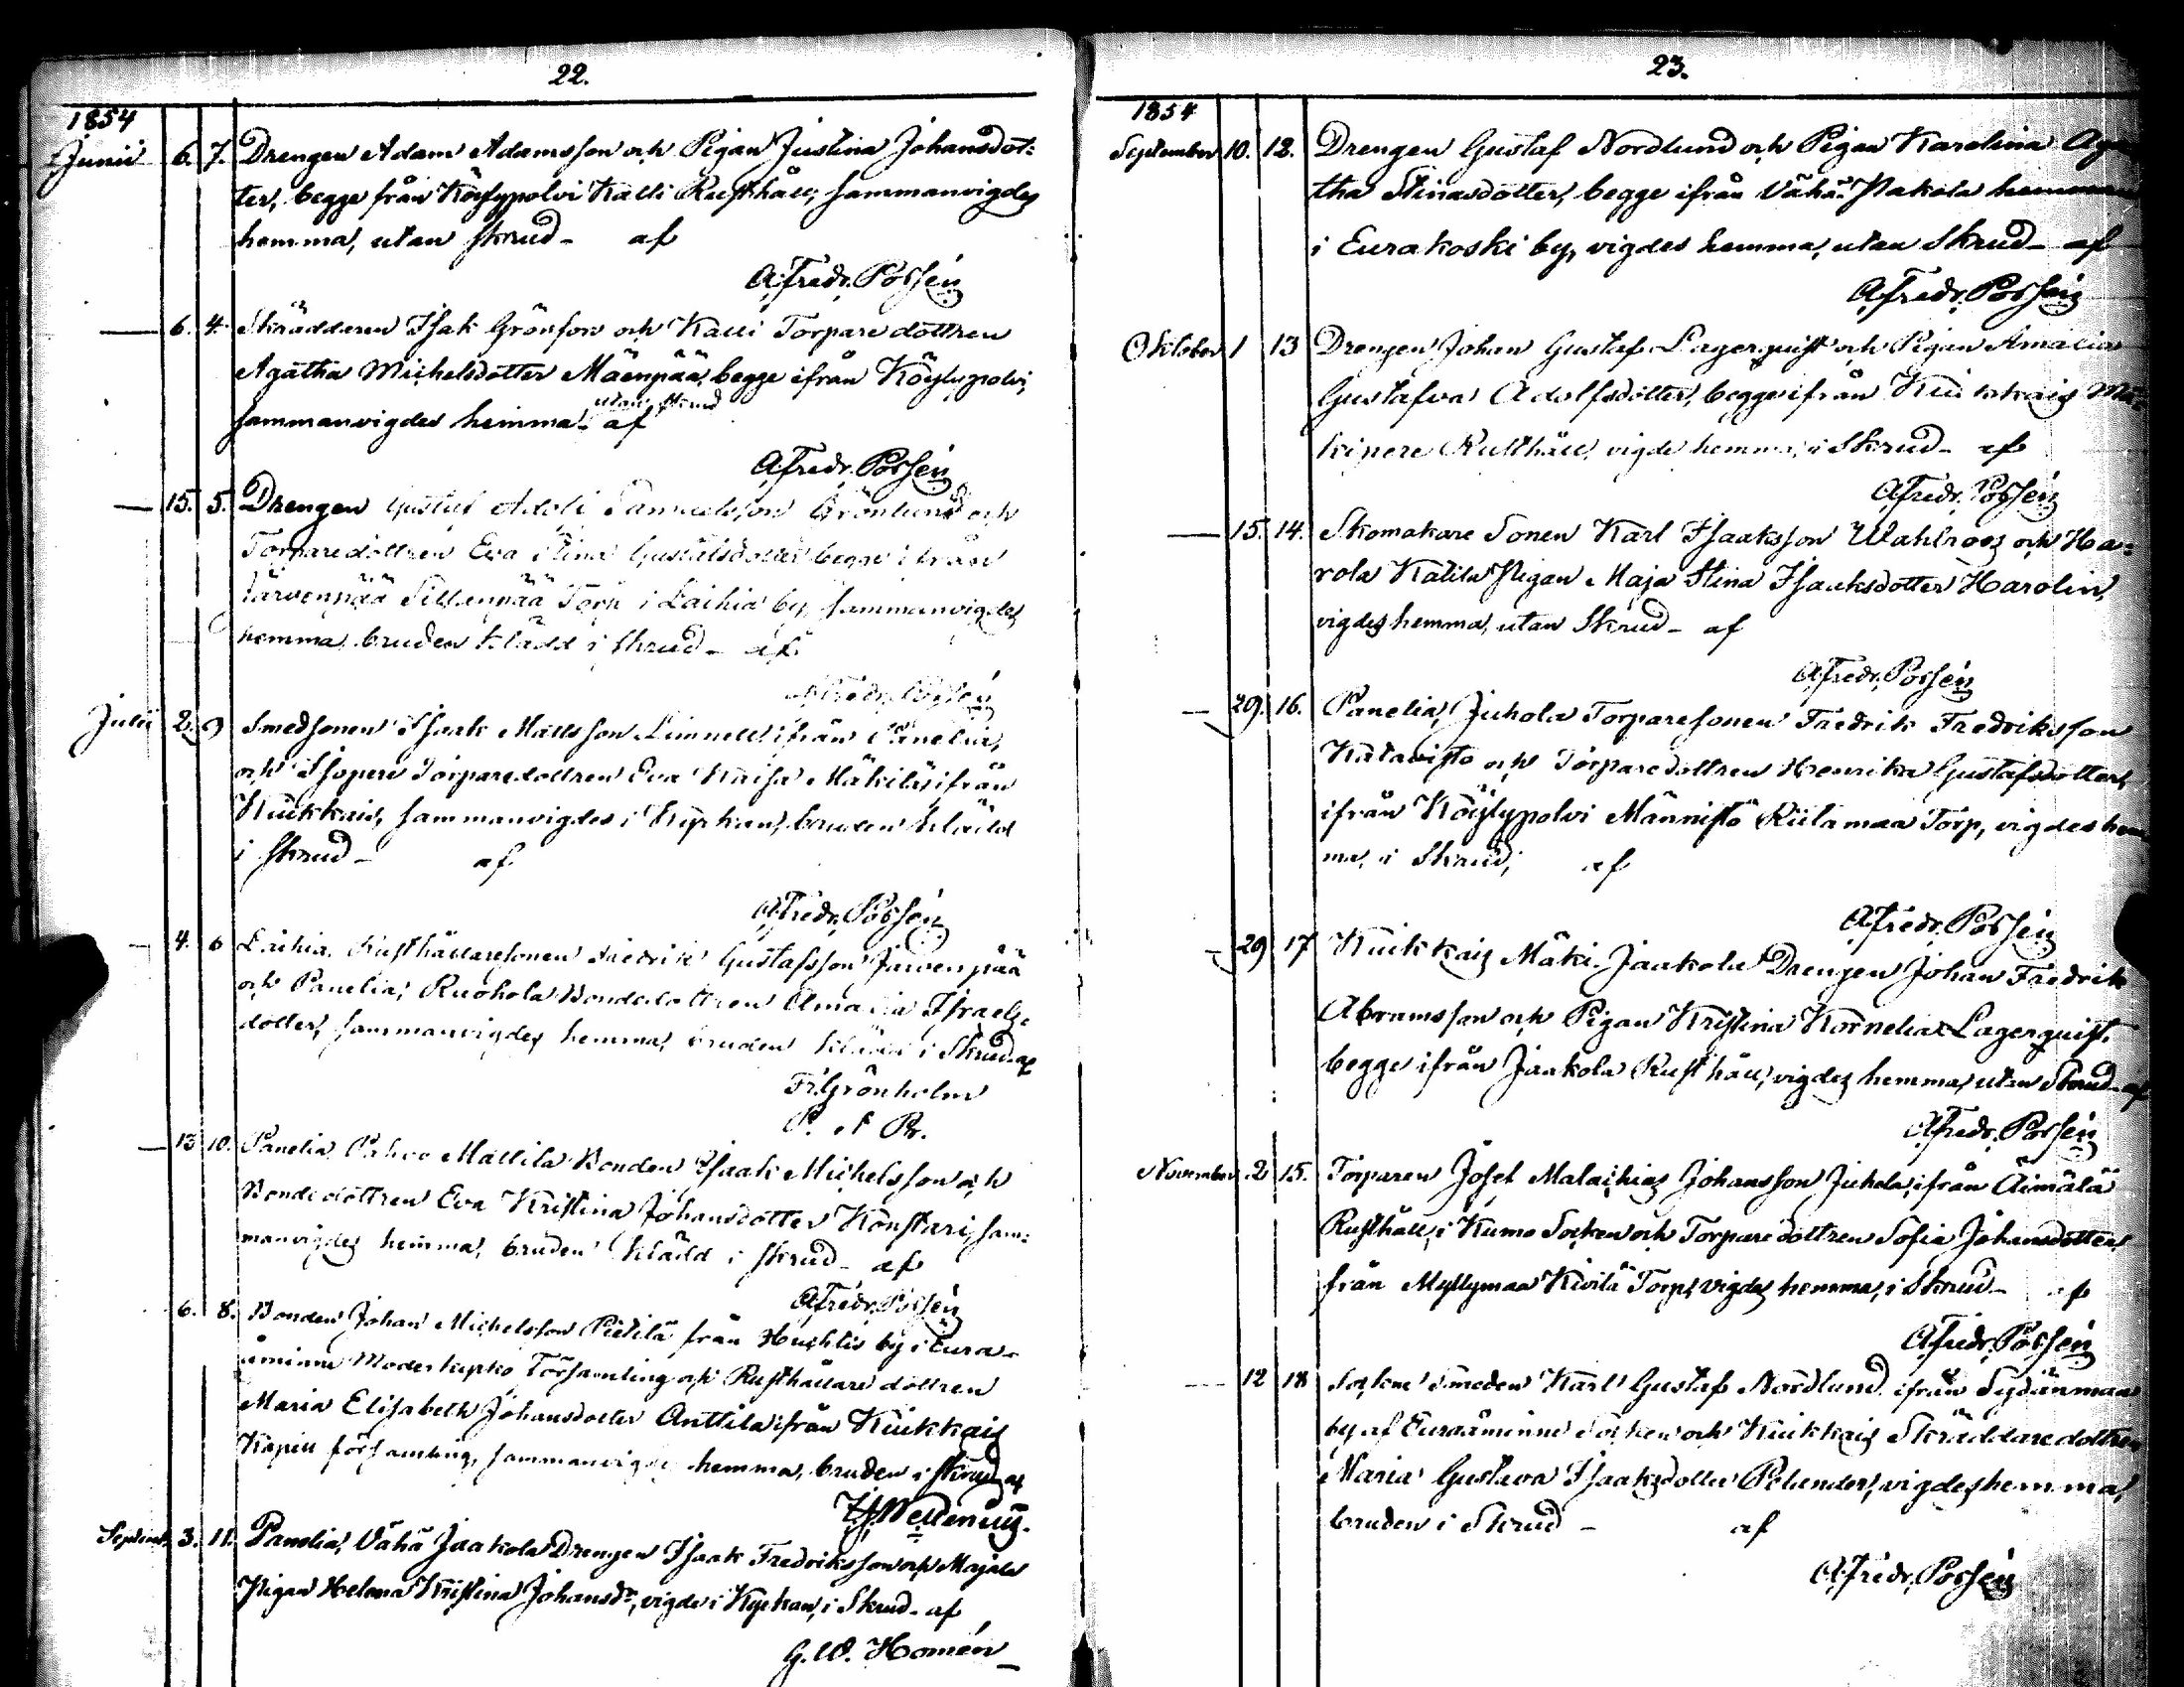 22.
1854
Junii 6. 7. Drengen Adam Adamsson och Pigan Justina Johansdot:
ter, begge från Köylypolvi Kalli Rusthåll, sammanvigdes
hemma, utan skrud - af
A. Fredr. Possén
— 6. 4. Skräddaren Isak Grönfors och Kalli Torpare dottren
Agatha Michelsdotter Mäenpää, begge ifrån Köylypolvi,
utan skrud
sammanvigdes hemma - af
A. Fredr. Possén
— 15. 5. Drengen Gustaf Adolf Samuelsson Grönlund och
Torparedottren Eva Stina Gustafsdotter begge ifrån
Järvenpää Sillanpää Torp i Laihia by, sammanvigdes
hemma, bruden klädd i skrud - af
A. Fredr. Possén
Julii 2. 9 Smedsonen Isaak Mattsson Linnell ifrån Panelia,
och Isopere Torparedottren Eva Kaisa Mäkilä ifrån
Kiukkais, sammanvigdes i Kyrkan, bruden klädd
i skrud - af
A. Fredr. Possén
— 4. 6 Laihia, Rusthållaresonen Fredrik Gustafsson Järvenpää
och Panelia, Ruohola Bondedottren Amalia Israels-
dotter, sammanvigdes hemma, bruden klädd i Skrud af
Fr. Grönholm
P. et Pr.
— 13 10. Panelia Mattila Bonden Isaak Michelsson och
Bondedottren Eva Kristina Johansdotter Konstari, sam:
manvigdes hemma, bruden klädd i skrud - af
A. Fredr. Possén
6. 8. Bonden Johan Michelsson Pietilä från Huhtis by i Eura-
åminne Moderkyrko Församling och Rusthållare dottren
Maria Elisabeth Johansdotter Anttila ifrån Kiukkais
Kapell församling, sammanvigdes hemma, bruden i skrud af
Septemb. 3. 11. Panelia, Vähä Jaakola Drengen Isaak Fredriksson och
Pigan Helena Kristina Johansdr, vigde i Kyrkan, i Skrud - af
G. W. Homén
23.
1854
September 10. 12. Drengen Gustaf Nordlund och Pigan Karolina Aga
tha Stinasdotter, begge ifrån Vähä hemman
i Eurakoski by, vigdes hemma, utan Skrud - af
A. Fredr. Possén
Oktober 1 13 Drengen Johan Gustaf Lagerquist och Pigan Amalia
Gustafva Adolfsdotter, begge ifrån Kiukkais Mä-
kipere Rusthåll, vigde hemma, i Skrud - af
A. Fredr. Possén
— 15. 14. Skomakare Sonen Karl Isaaksson Wahlroos och Ha:
rola Katila Pigan Maja Stina Isaaksdotter Harolin,
vigdes hemma, utan Skrud - af
A. Fredr. Possén
— 29. 16. Panelia, Juhola Torparesonen Fredrik Fredriksson
Katavisto och Torparedottren Henrika Gustafsdotter,
ifrån Köylypolvi Männistö Riitamaa Torp, vigdes hem
ma, i Skrud, af
A. Fredr. Possén
— 29 17 Kiukkais Mäki-Jaakola Drengen Johan Fredrik
Abramsson och Pigan Kristina Kornelia Lagerquist,
begge ifrån Jaakola Rusthåll, vigdes hemma, utan Skrud - af
A. Fredr. Possén
November 2 15. Torparen Josef Malachias Johansson Juhola, ifrån Äimälä
Rusthåll, i Kumo Socken och Torpare dottren Sofia Johansdotter
från Myllymaa Kivilä Torp, vigdes hemma, i Skrud - af
A. Fredr. Possén
— 12 18 Socknesmeden Karl Gustaf Nordlund ifrån Sydänmaa
by af Euraåminne Socken och Kiukkais Skräddaredottren
Maria Gustava Isaaksdotter Pelander, vigdes hemma,
bruden i Skrud - af
A. Fredr. Possén